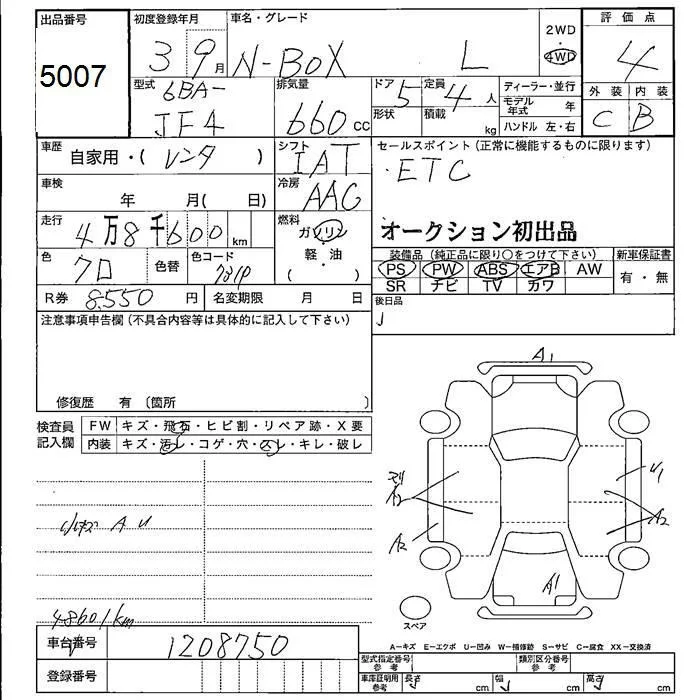 出品番号 初度登録年月 車名・グレード 2WD・4WD 評価点
5007 3 9月 N-BOX L 4
型式 6BA-JF4 排気量 660 cc ドア 5 形状 定員 4 人 積載 kg
ディーラー・並行
モデル年式 年
ハンドル 左・右
外装 C 内装 B
車歴 自家用・( レンタ ) シフト IAT
セールスポイント(正常に機能するものに限ります)
・ETC
車検 年 月( 日) 冷房 AAC
走行 4万8千600 km 燃料 ガソリン・軽・油 ( )
オークション初出品
色 クロ 色替 色コード
装備品(純正品に限り○をつけて下さい) 新車保証書
PS PW ABS エアB AW 有・無
SR チビ TV カワ
R券 8550 円 名変期限 月 日
後日品
注意事項申告欄(不具合内容等は具体的に記入して下さい)
修復歴 有 〔箇所 〕
検査員記入欄
FW キズ・飛石・ヒビ割・リペア跡・X要
内装 キズ・汚レ・コゲ・穴・スレ・キレ・破レ
A1
U1
A2
A2
A2
A1
小キズ A U
48601km
スペア
A−キズ E−エクボ U−凹み W−補修跡 S−サビ C−腐食 XX−交換済
車台番号 1208750
型式指定番号 参考 類別区分番号 参考
登録番号
車庫証明用 参考 長さ cm 幅 cm 高さ cm